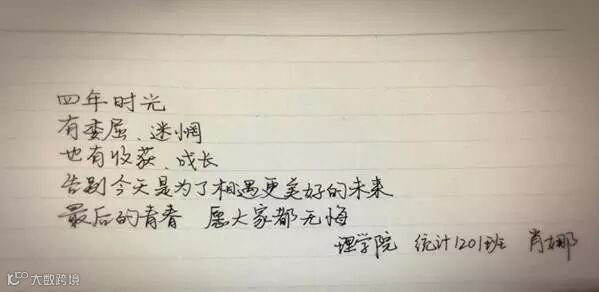 四年时光
有委屈、迷惘
也有收获、成长
告别今天是为了相遇更美好的未来
最后的青春 愿大家都无悔
理学院 统计1201班 肖娜
大数跨境